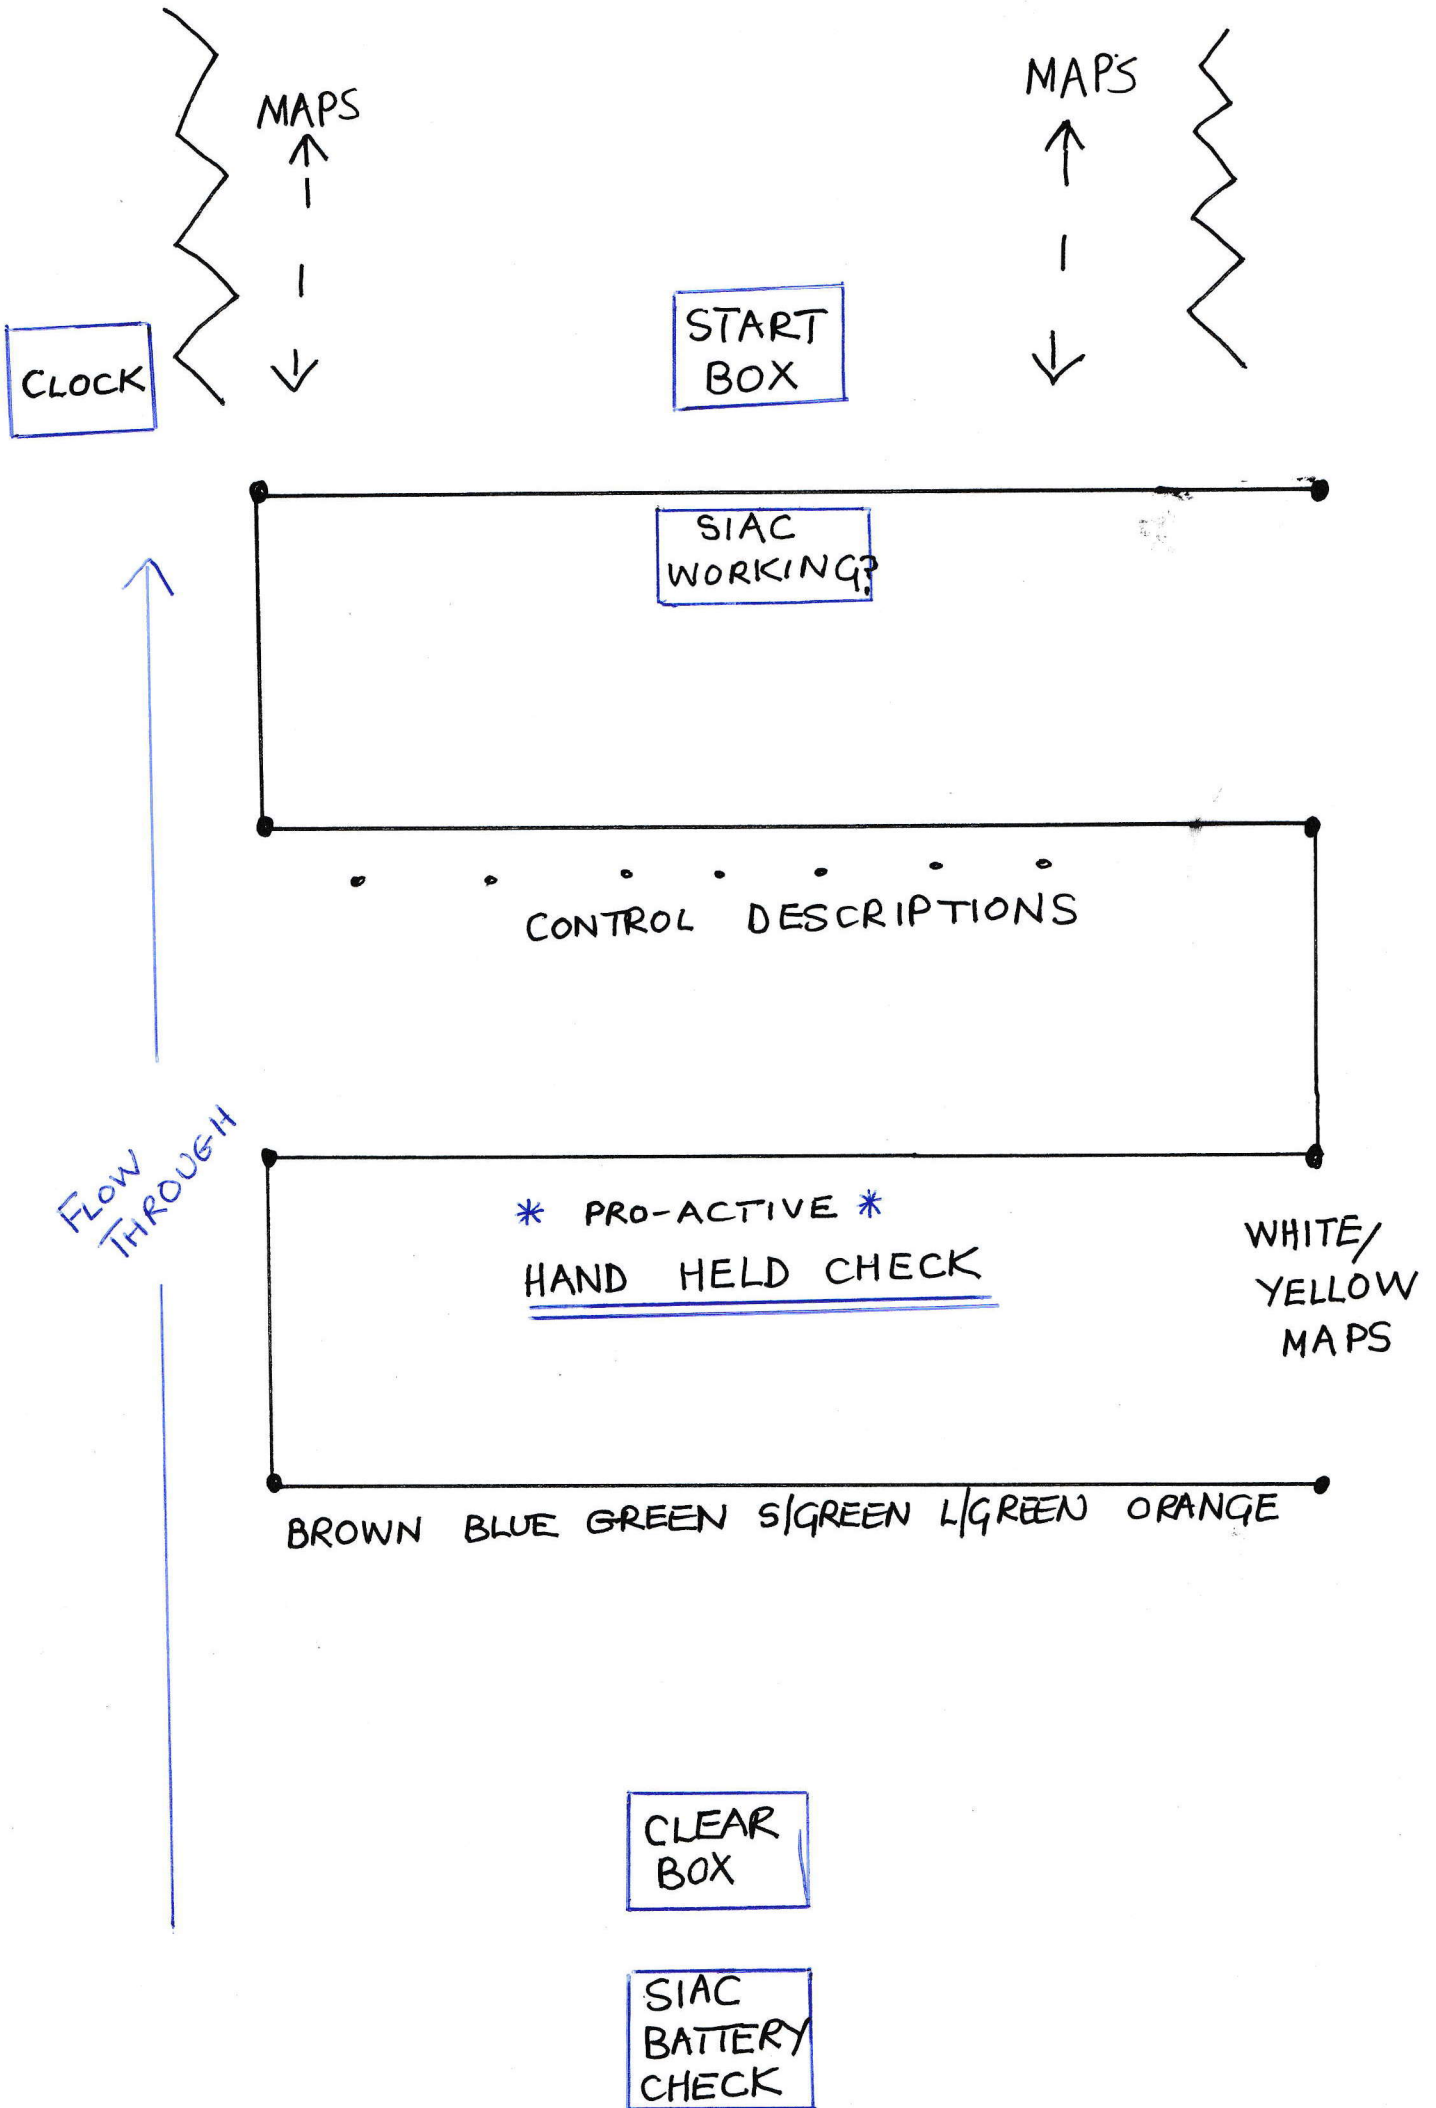 MAPS
MAPS
START
BOX
CLOCK
SIAC
WORKING?
CONTROL DESCRIPTIONS
FLOW
THROUGH
* PRO-ACTIVE *
HAND HELD CHECK
WHITE/
YELLOW
MAPS
BROWN BLUE GREEN S/GREEN L/GREEN ORANGE
CLEAR
BOX
SIAC
BATTERY
CHECK